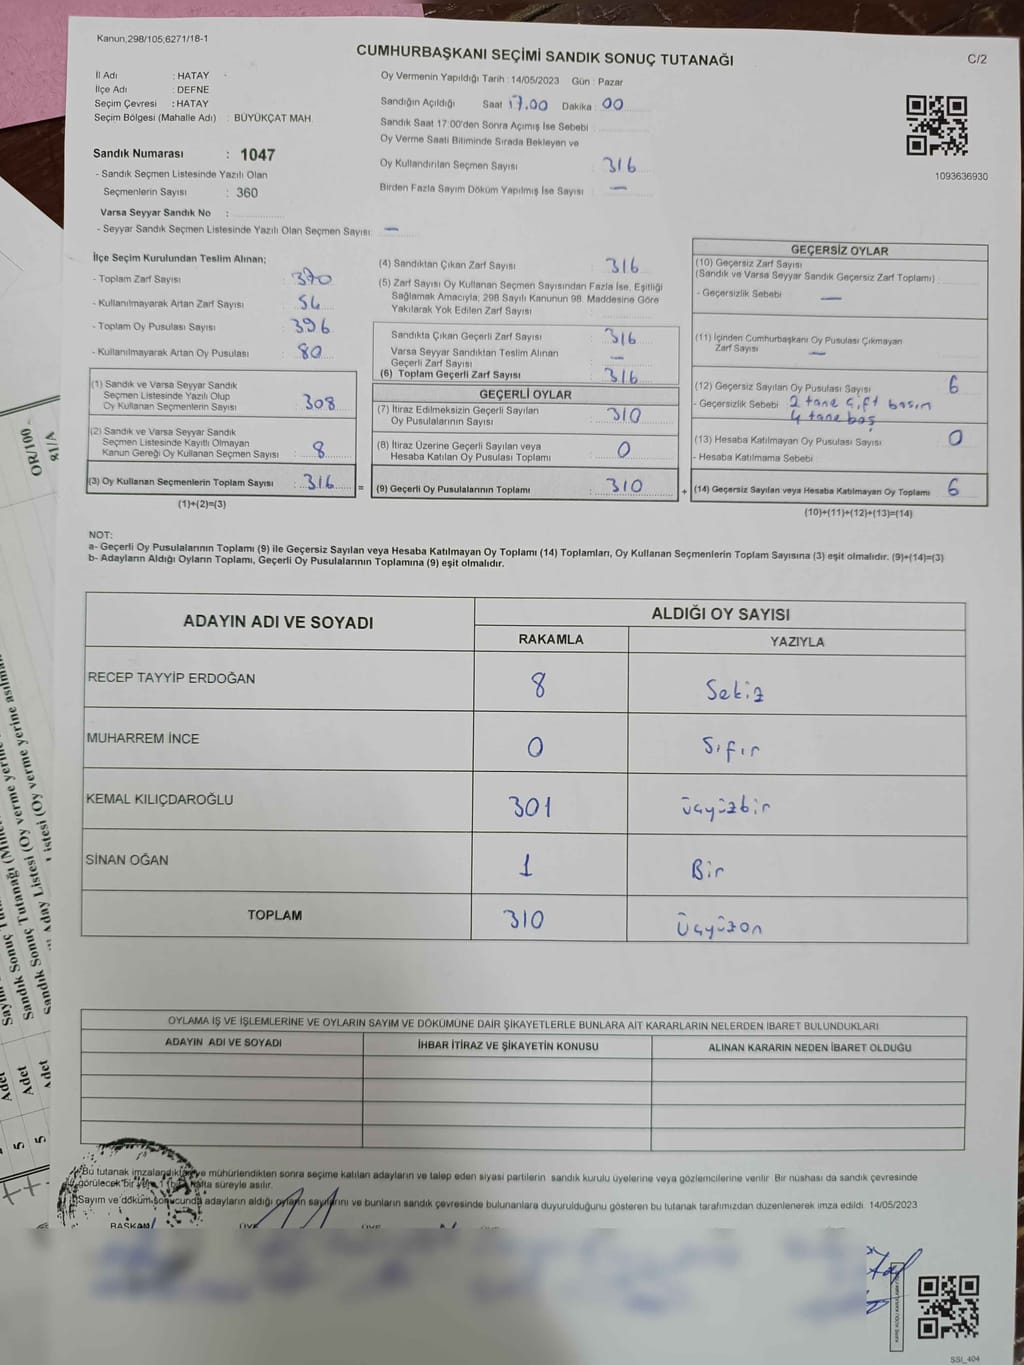 Kanun,298/105,6271/18-1
CUMHURBAŞKANI SEÇİMİ SANDIK SONUÇ TUTANAĞI
C/2
İl Adı : HATAY
İlçe Adı : DEFNE
Seçim Çevresi : HATAY
Seçim Bölgesi (Mahalle Adı) : BÜYÜKÇAT MAH.
Sandık Numarası : 1047
- Sandık Seçmen Listesinde Yazılı Olan
Seçmenlerin Sayısı : 360
Varsa Seyyar Sandık No :
- Seyyar Sandık Seçmen Listesinde Yazılı Olan Seçmen Sayısı: —
Oy Vermenin Yapıldığı Tarih : 14/05/2023 Gün : Pazar
Sandığın Açıldığı Saat 17.00 Dakika : 00
Sandık Saat 17:00'den Sonra Açımış İse Sebebi
Oy Verme Saati Bitiminde Sırada Bekleyen ve
Oy Kullandırılan Seçmen Sayısı 316
Birden Fazla Sayım Döküm Yapılmış İse Sayısı —
1093636930
İlçe Seçim Kurulundan Teslim Alınan;
- Toplam Zarf Sayısı : 370
- Kullanılmayarak Artan Zarf Sayısı : 54
- Toplam Oy Pusulası Sayısı : 396
- Kullanılmayarak Artan Oy Pusulası : 80
(1) Sandık ve Varsa Seyyar Sandık
Seçmen Listesinde Yazılı Olup
Oy Kullanan Seçmenlerin Sayısı : 308
(2) Sandık ve Varsa Seyyar Sandık
Seçmen Listesinde Kayıtlı Olmayan
Kanun Gereği Oy Kullanan Seçmen Sayısı : 8
(3) Oy Kullanan Seçmenlerin Toplam Sayısı : 316 =
(1)+(2)=(3)
(4) Sandıktan Çıkan Zarf Sayısı : 316
(5) Zarf Sayısı Oy Kullanan Seçmen Sayısından Fazla İse, Eşitliği
Sağlamak Amacıyla; 298 Sayılı Kanunun 98. Maddesine Göre
Yakılarak Yok Edilen Zarf Sayısı :
Sandıkta Çıkan Geçerli Zarf Sayısı : 316
Varsa Seyyar Sandıktan Teslim Alınan
Geçerli Zarf Sayısı —
(6) Toplam Geçerli Zarf Sayısı : 316
GEÇERLİ OYLAR
(7) İtiraz Edilmeksizin Geçerli Sayılan
Oy Pusulalarının Sayısı : 310
(8) İtiraz Üzerine Geçerli Sayılan veya
Hesaba Katılan Oy Pusulası Toplamı : 0
(9) Geçerli Oy Pusulalarının Toplamı : 310 +
GEÇERSİZ OYLAR
(10) Geçersiz Zarf Sayısı
(Sandık ve Varsa Seyyar Sandık Geçersiz Zarf Toplamı)
- Geçersizlik Sebebi —
(11) İçinden Cumhurbaşkanı Oy Pusulası Çıkmayan
Zarf Sayısı —
(12) Geçersiz Sayılan Oy Pusulası Sayısı 6
- Geçersizlik Sebebi 2 tane çift basım
4 tane boş
(13) Hesaba Katılmayan Oy Pusulası Sayısı 0
- Hesaba Katılmama Sebebi
(14) Geçersiz Sayılan veya Hesaba Katılmayan Oy Toplamı 6
(10)+(11)+(12)+(13)=(14)
NOT:
a- Geçerli Oy Pusulalarının Toplamı (9) ile Geçersiz Sayılan veya Hesaba Katılmayan Oy Toplamı (14) Toplamları, Oy Kullanan Seçmenlerin Toplam Sayısına (3) eşit olmalıdır. (9)+(14)=(3)
b- Adayların Aldığı Oyların Toplamı, Geçerli Oy Pusulalarının Toplamına (9) eşit olmalıdır.
ADAYIN ADI VE SOYADI
ALDIĞI OY SAYISI
RAKAMLA YAZIYLA
RECEP TAYYİP ERDOĞAN 8 Sekiz
MUHARREM İNCE 0 Sıfır
KEMAL KILIÇDAROĞLU 301 üçyüzbir
SİNAN OĞAN 1 Bir
TOPLAM 310 Üçyüzon
OYLAMA İŞ VE İŞLEMLERİNE VE OYLARIN SAYIM VE DÖKÜMÜNE DAİR ŞİKAYETLERLE BUNLARA AİT KARARLARIN NELERDEN İBARET BULUNDUKLARI
ADAYIN ADI VE SOYADI İHBAR İTİRAZ VE ŞİKAYETİN KONUSU ALINAN KARARIN NEDEN İBARET OLDUĞU
Bu tutanak imzalandıktan ve mühürlendikten sonra seçime katılan adayların ve talep eden siyasi partilerin sandık kurulu üyelerine veya gözlemcilerine verilir. Bir nüshası da sandık çevresinde
görülecek bir yere 1 (bir) hafta süreyle asılır.
Sayım ve döküm sonucunda adayların aldığı oyların sayılarını ve bunların sandık çevresinde bulunanlara duyurulduğunu gösteren bu tutanak tarafımızdan düzenlenerek imza edildi. 14/05/2023
BAŞKAN
SSI_404
OR/100
81/A
Adet
Adet
Adet
5
5